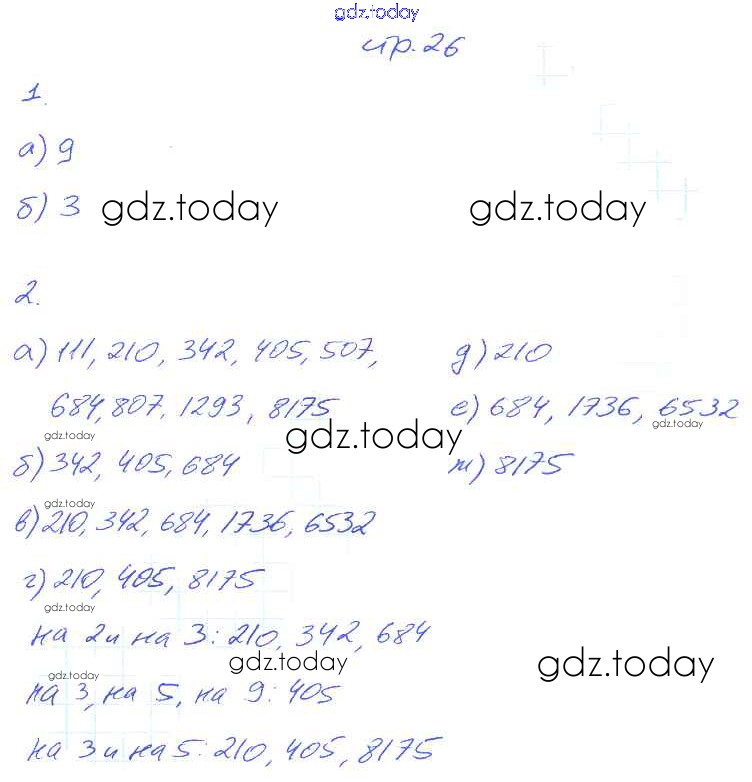 gdz.today
стр. 26
1.
а) 9
б) 3 gdz.today gdz.today
2.
а) 111, 210, 342, 405, 507,
684, 807, 1293, 8175
gdz.today
gdz.today
б) 342, 405, 684
gdz.today
в) 210, 342, 684, 1736, 6532
г) 210, 405, 8175
gdz.today
на 2 и на 3: 210, 342, 684
gdz.today gdz.today
gdz.today
на 3, на 5, на 9: 405
на 3 и на 5: 210, 405, 8175
д) 210
е) 684, 1736, 6532
gdz.today
ж) 8175